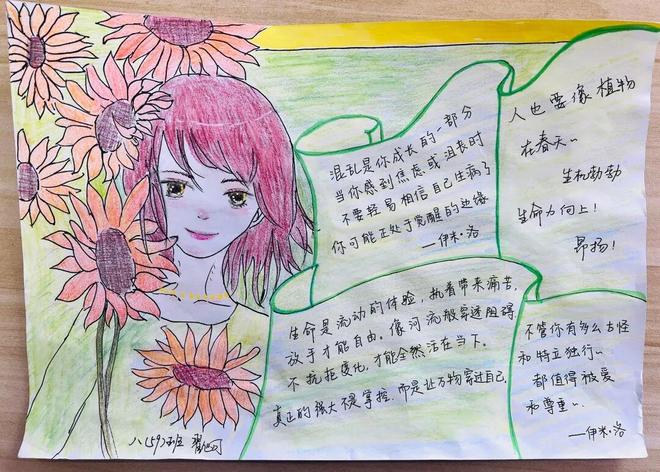 混乱是你成长的一部分
当你感到焦虑或沮丧时
不要轻易相信自己生病了
你可能正处于觉醒的边缘
—伊米·洛
人也要像植物
在春天~
生机勃勃
生命力向上!
昂扬!
生命是流动的体验,执着带来痛苦,
放手才能自由。像河流般穿越阻碍
不抗拒变化,才能全然活在当下.
真正的强大不是掌控,而是让万物穿过自己.
不管你有多么古怪
和特立独行~
都值得被爱
和尊重~
—伊米·洛
八(59)班